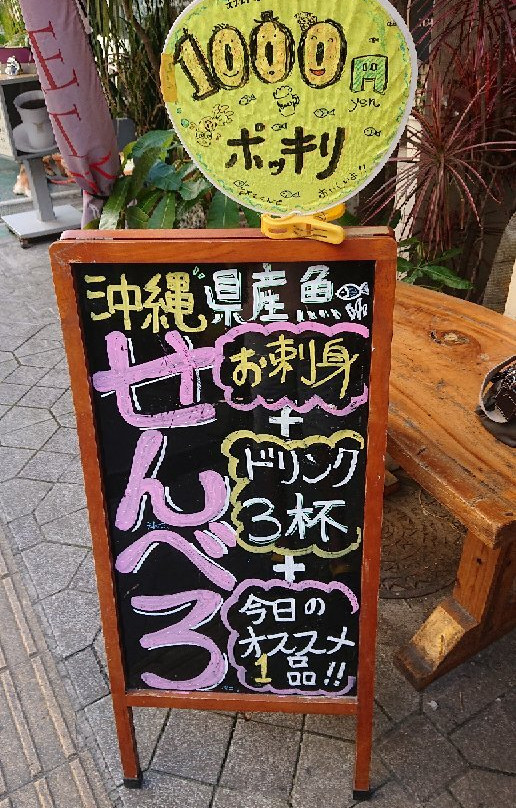 1000円
yen
ポッキリ
沖縄県産魚
せんべろ
お刺身
+
ドリンク
3杯
+
今日の
オススメ
1品!!